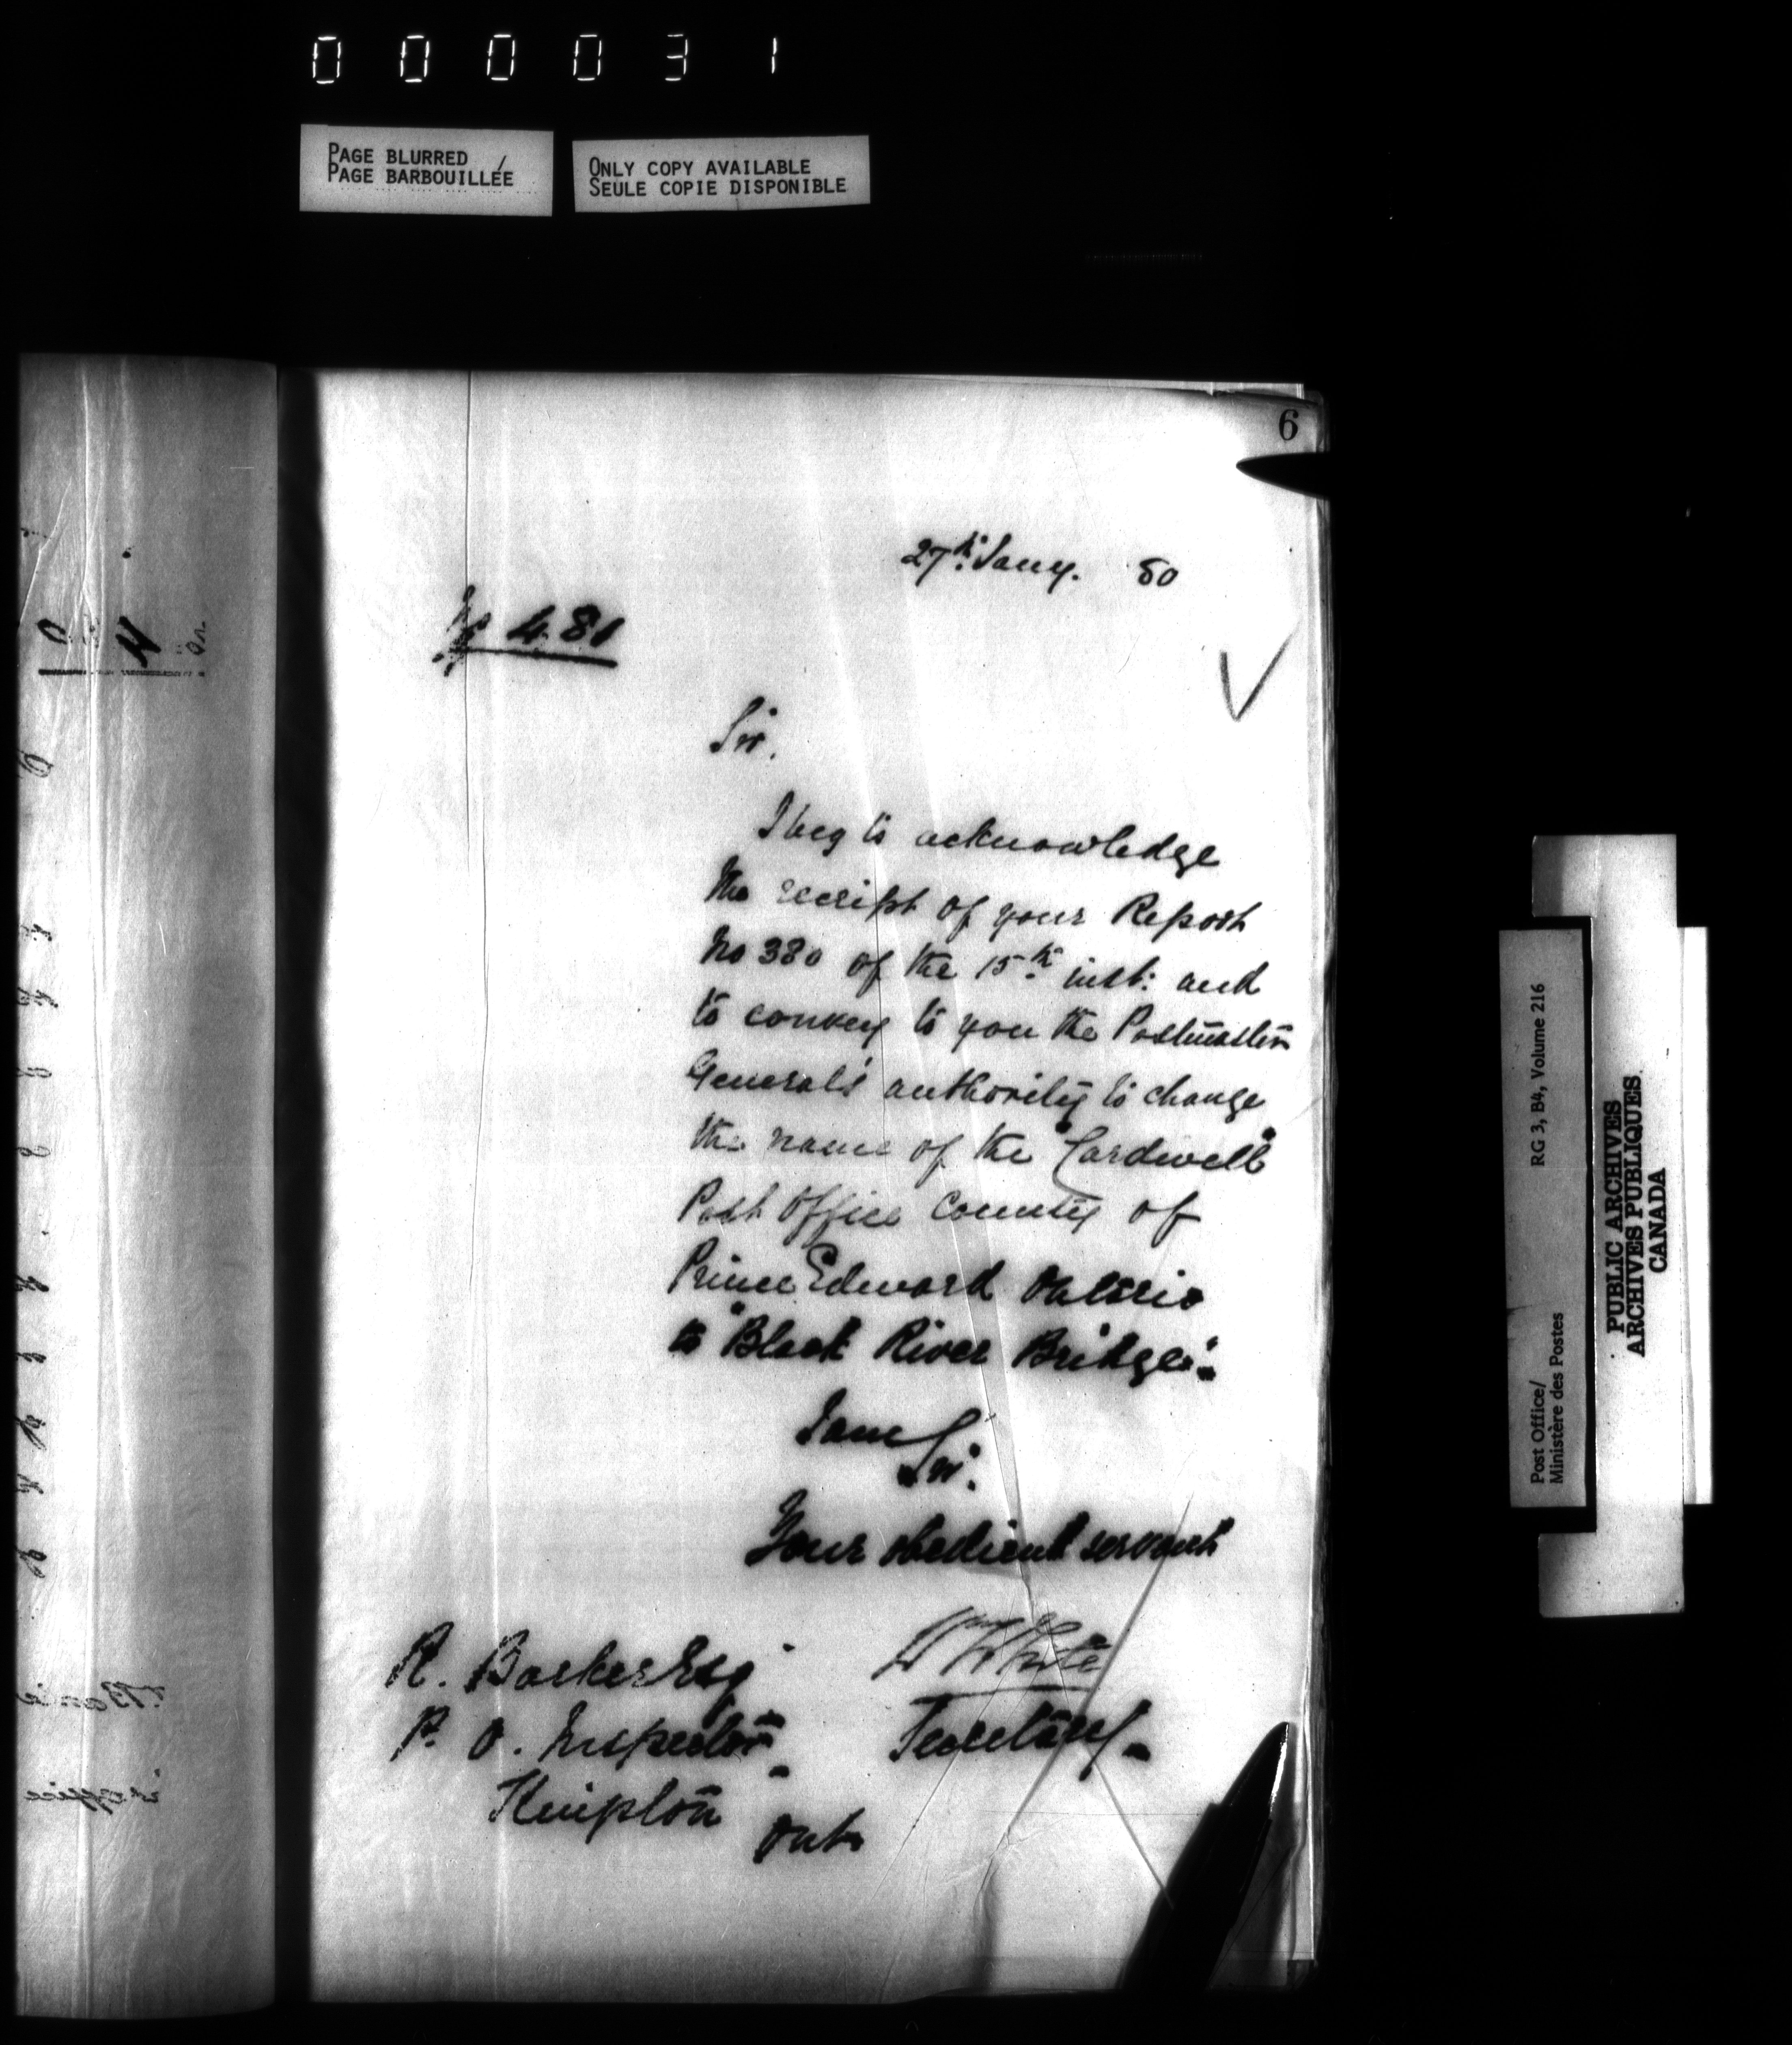 000031
PAGE BLURRED
PAGE BARBOUILLÉE
ONLY COPY AVAILABLE
SEULE COPIE DISPONIBLE
6
27th Jany. 80
No 481
Sir,
I beg to acknowledge
the receipt of your Report
No 380 of the 15th inst: and
to convey to you the Postmaster
General's authority to change
the name of the "Cardwell"
Post Office County of
Prince Edward Ontario
to "Black River Bridge".
I am
Sir.
Your obedient servant
W White
Secretary
R. Barker Esq
P. O. Inspector
Kingston
Ont
Post Office/
Ministère des Postes
RG 3, B4, Volume 216
PUBLIC ARCHIVES
ARCHIVES PUBLIQUES
CANADA